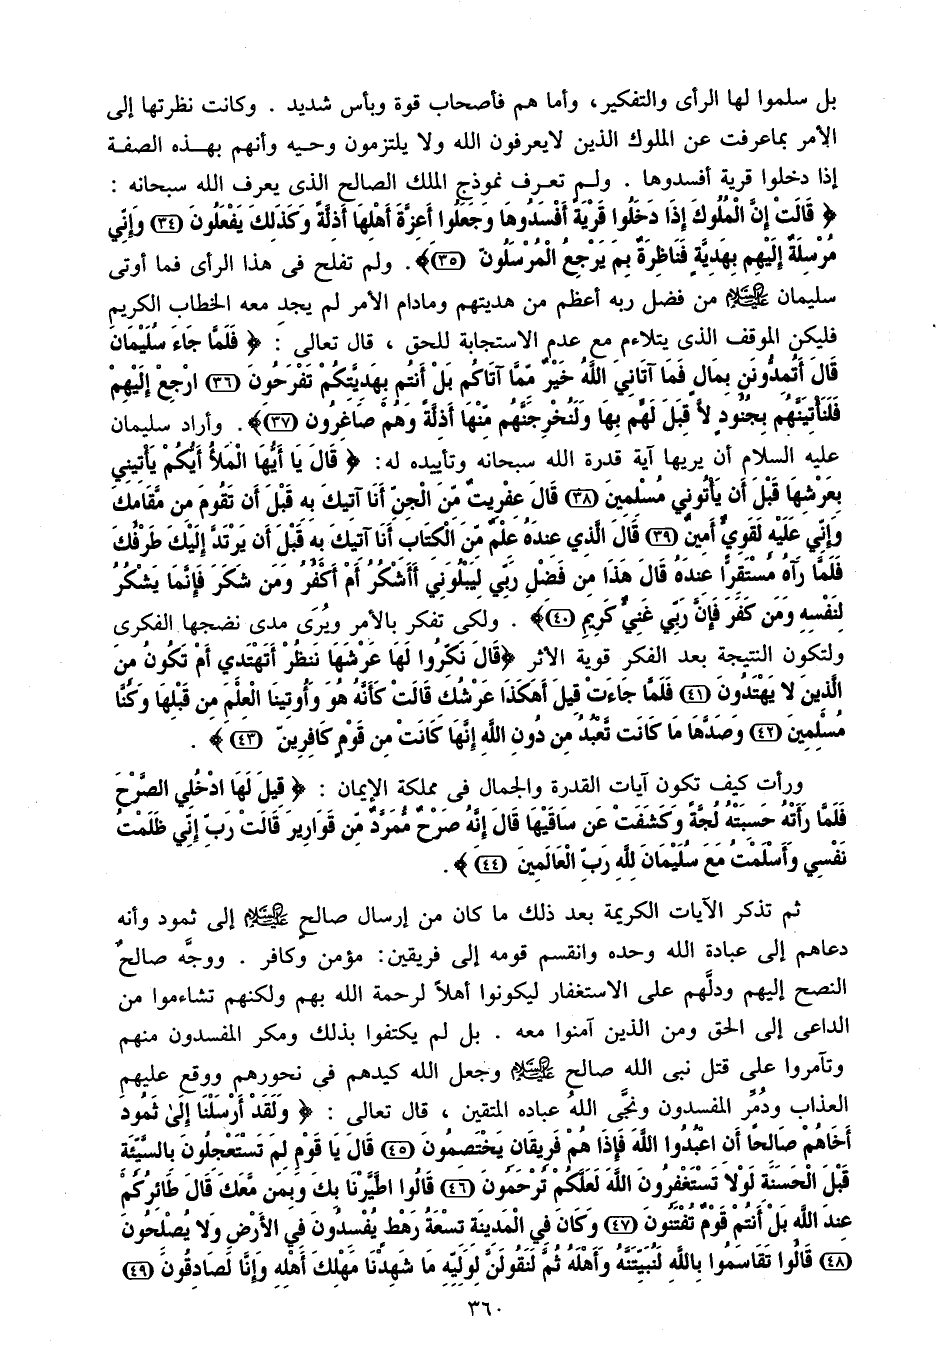 بل سلموا لها الرأى والتفكير، وأما هم فأصحاب قوة وبأس شديد . وكانت نظرتها إلى
الأمر بماعرفت عن الملوك الذين لايعرفون الله ولا يلتزمون وحيه وأنهم بهذه الصفة
إذا دخلوا قرية أفسدوها . ولم تعرف نموذج الملك الصالح الذى يعرف الله سبحانه :
﴿ قَالَتْ إِنَّ الْمُلُوكَ إِذَا دَخَلُوا قَرْيَةً أَفْسَدُوهَا وَجَعَلُوا أَعِزَّةَ أَهْلِهَا أَذِلَّةً وَكَذَلِكَ يَفْعَلُونَ (٣٤) وَإِنِّي
مُرْسِلَةٌ إِلَيْهِم بِهَدِيَّةٍ فَنَاظِرَةٌ بِمَ يَرْجِعُ الْمُرْسَلُونَ (٣٥)﴾ . ولم تفلح فى هذا الرأى فما أوتى
سليمان عليه السلام من فضل ربه أعظم من هديتهم ومادام الأمر لم يجد معه الخطاب الكريم
فليكن الموقف الذى يتلاءم مع عدم الاستجابة للحق ، قال تعالى : ﴿ فَلَمَّا جَاءَ سُلَيْمَانَ
قَالَ أَتُمِدُّونَنِ بِمَالٍ فَمَا آتَانِيَ اللَّهُ خَيْرٌ مِّمَّا آتَاكُم بَلْ أَنتُم بِهَدِيَّتِكُمْ تَفْرَحُونَ (٣٦) ارْجِعْ إِلَيْهِمْ
فَلَنَأْتِيَنَّهُم بِجُنُودٍ لاَّ قِبَلَ لَهُم بِهَا وَلَنُخْرِجَنَّهُم مِّنْهَا أَذِلَّةً وَهُمْ صَاغِرُونَ (٣٧)﴾ . وأراد سليمان
عليه السلام أن يريها آية قدرة الله سبحانه وتأييده له: ﴿ قَالَ يَا أَيُّهَا الْمَلأُ أَيُّكُمْ يَأْتِينِي
بِعَرْشِهَا قَبْلَ أَن يَأْتُونِي مُسْلِمِينَ (٣٨) قَالَ عِفْرِيتٌ مِّنَ الْجِنِّ أَنَا آتِيكَ بِهِ قَبْلَ أَن تَقُومَ مِن مَّقَامِكَ
وَإِنِّي عَلَيْهِ لَقَوِيٌّ أَمِينٌ (٣٩) قَالَ الَّذِي عِندَهُ عِلْمٌ مِّنَ الْكِتَابِ أَنَا آتِيكَ بِهِ قَبْلَ أَن يَرْتَدَّ إِلَيْكَ طَرْفُكَ
فَلَمَّا رَآهُ مُسْتَقِرًّا عِندَهُ قَالَ هَذَا مِن فَضْلِ رَبِّي لِيَبْلُوَنِي أَأَشْكُرُ أَمْ أَكْفُرُ وَمَن شَكَرَ فَإِنَّمَا يَشْكُرُ
لِنَفْسِهِ وَمَن كَفَرَ فَإِنَّ رَبِّي غَنِيٌّ كَرِيمٌ (٤٠)﴾ . ولكى تفكر بالأمر ويُرَى مدى نضجها الفكرى
ولتكون النتيجة بعد الفكر قوية الأثر ﴿قَالَ نَكِّرُوا لَهَا عَرْشَهَا نَنظُرْ أَتَهْتَدِي أَمْ تَكُونُ مِنَ
الَّذِينَ لا يَهْتَدُونَ (٤١) فَلَمَّا جَاءَتْ قِيلَ أَهَكَذَا عَرْشُكِ قَالَتْ كَأَنَّهُ هُوَ وَأُوتِينَا الْعِلْمَ مِن قَبْلِهَا وَكُنَّا
مُسْلِمِينَ (٤٢) وَصَدَّهَا مَا كَانَت تَّعْبُدُ مِن دُونِ اللَّهِ إِنَّهَا كَانَتْ مِن قَوْمٍ كَافِرِينَ (٤٣) ﴾ .
ورأت كيف تكون آيات القدرة والجمال فى مملكة الإيمان : ﴿ قِيلَ لَهَا ادْخُلِي الصَّرْحَ
فَلَمَّا رَأَتْهُ حَسِبَتْهُ لُجَّةً وَكَشَفَتْ عَن سَاقَيْهَا قَالَ إِنَّهُ صَرْحٌ مُّمَرَّدٌ مِّن قَوَارِيرَ قَالَتْ رَبِّ إِنِّي ظَلَمْتُ
نَفْسِي وَأَسْلَمْتُ مَعَ سُلَيْمَانَ لِلَّهِ رَبِّ الْعَالَمِينَ (٤٤) ﴾ .
ثم تذكر الآيات الكريمة بعد ذلك ما كان من إرسال صالح عليه السلام إلى ثمود وأنه
دعاهم إلى عبادة الله وحده وانقسم قومه إلى فريقين: مؤمن وكافر . ووجَّه صالحٌ
النصح إليهم ودلَّهم على الاستغفار ليكونوا أهلاً لرحمة الله بهم ولكنهم تشاءموا من
الداعى إلى الحق ومن الذين آمنوا معه . بل لم يكتفوا بذلك ومكر المفسدون منهم
وتآمروا على قتل نبى الله صالح عليه السلام وجعل الله كيدهم فى نحورهم ووقع عليهم
العذاب ودُمِّر المفسدون ونجَّى اللهُ عباده المتقين ، قال تعالى : ﴿ وَلَقَدْ أَرْسَلْنَا إِلَى ثَمُودَ
أَخَاهُمْ صَالِحًا أَنِ اعْبُدُوا اللَّهَ فَإِذَا هُمْ فَرِيقَانِ يَخْتَصِمُونَ (٤٥) قَالَ يَا قَوْمِ لِمَ تَسْتَعْجِلُونَ بِالسَّيِّئَةِ
قَبْلَ الْحَسَنَةِ لَوْلا تَسْتَغْفِرُونَ اللَّهَ لَعَلَّكُمْ تُرْحَمُونَ (٤٦) قَالُوا اطَّيَّرْنَا بِكَ وَبِمَن مَّعَكَ قَالَ طَائِرُكُمْ
عِندَ اللَّهِ بَلْ أَنتُمْ قَوْمٌ تُفْتَنُونَ (٤٧) وَكَانَ فِي الْمَدِينَةِ تِسْعَةُ رَهْطٍ يُفْسِدُونَ فِي الأَرْضِ وَلا يُصْلِحُونَ
(٤٨) قَالُوا تَقَاسَمُوا بِاللَّهِ لَنُبَيِّتَنَّهُ وَأَهْلَهُ ثُمَّ لَنَقُولَنَّ لِوَلِيِّهِ مَا شَهِدْنَا مَهْلِكَ أَهْلِهِ وَإِنَّا لَصَادِقُونَ (٤٩)
٣٦٠